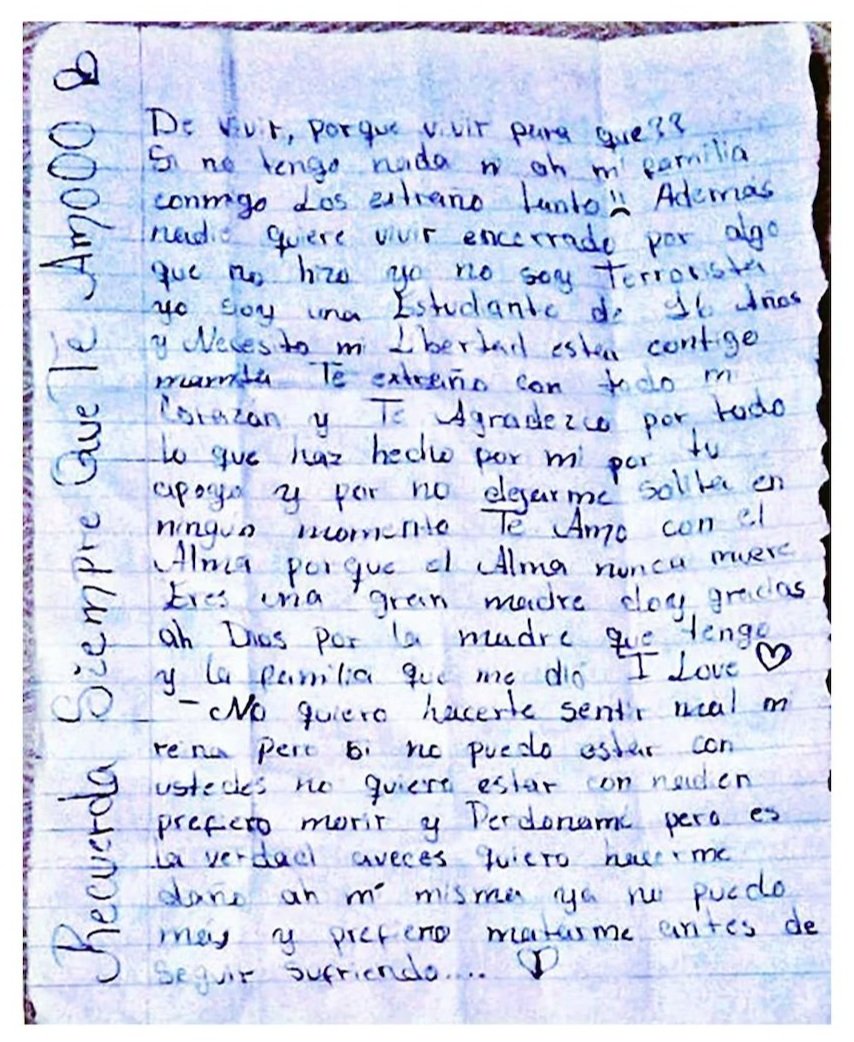 De vivir, porque vivir para que??
Si no tengo nada ni ah mi familia
conmigo Los extraño tanto Además
nadie quiere vivir encerrado por algo
que no hizo yo no soy Terrorista
yo soy una Estudiante de 16 Años
y Necesito mi Libertad estar contigo
mamita Te extraño con todo mi
Corazon y Te Agradezco por todo
lo que haz hecho por mi por tu
apoyo y por no dejarme solita en
ningun momento Te Amo con el
Alma porque el Alma nunca muere
Eres una gran madre doy gracias
ah Dios por la madre que tengo
y la familia que me dio I Love ♡
- No quiero hacerte sentir mal mi
reina pero si no puedo estar con
ustedes no quiero estar con nadien
prefiero morir y Perdoname pero es
la verdad aveces quiero hacerme
daño ah mi misma ya no puedo
mas y prefiero matarme antes de
seguir sufriendo.... ♡
Recuerda Siempre Que Te Amooo